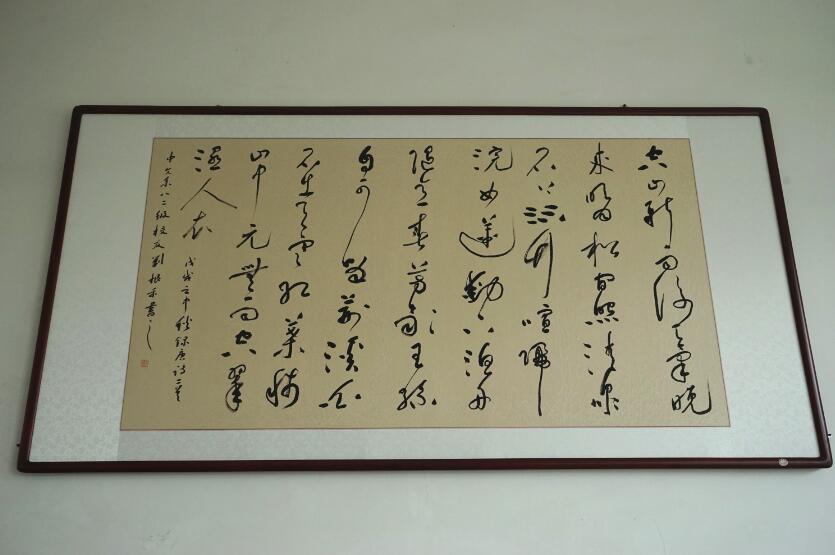 空山新雨後天氣晚
来明月松間照清泉
石上流竹喧歸
浣女蓮動下漁舟
隨意春芳歇王孫
自可留荊溪白
石出天寒紅葉稀
山中元無雨空翠
濕人衣
戊戌之中秋録唐詩二首
中文系八二级校友劉根禾書之